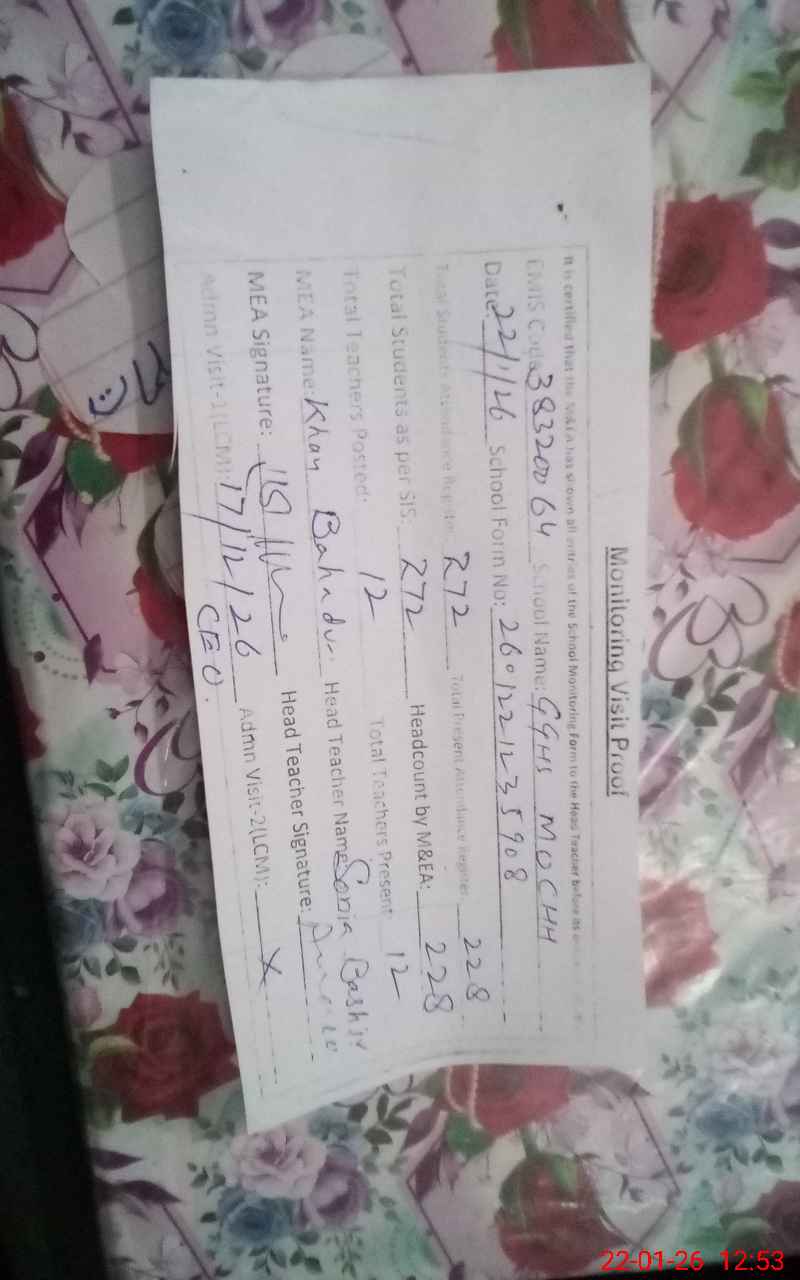 Monitoring Visit Proof
It is certified that the M&EA has shown all entries of the School Monitoring Form to the Head Teacher before its
EMIS Code: 38320064 School Name: GGHS MOCHH
Date: 22/1/26 School Form No: 2601221235908
Total Students Attendance Register 272 Total Present Attendance Register 228
Total Students as per SIS: 272 Headcount by M&EA: 228
Total Teachers Posted: 12 Total Teachers Present 12
MEA Name: Khan Bahadur Head Teacher Name: Sonia Bashir
MEA Signature: Head Teacher Signature:
Admn Visit-1(LCM): 17/12/26 Admn Visit-2(LCM): X
CEO.
22-01-26 12:53